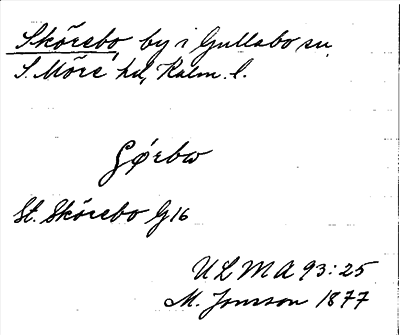 Skörebo, by i Gullabo sn.
S. Möre hd, Kalm. l.
St. Skörebo G16
ULMA 93:25
M. Jonsson 1877